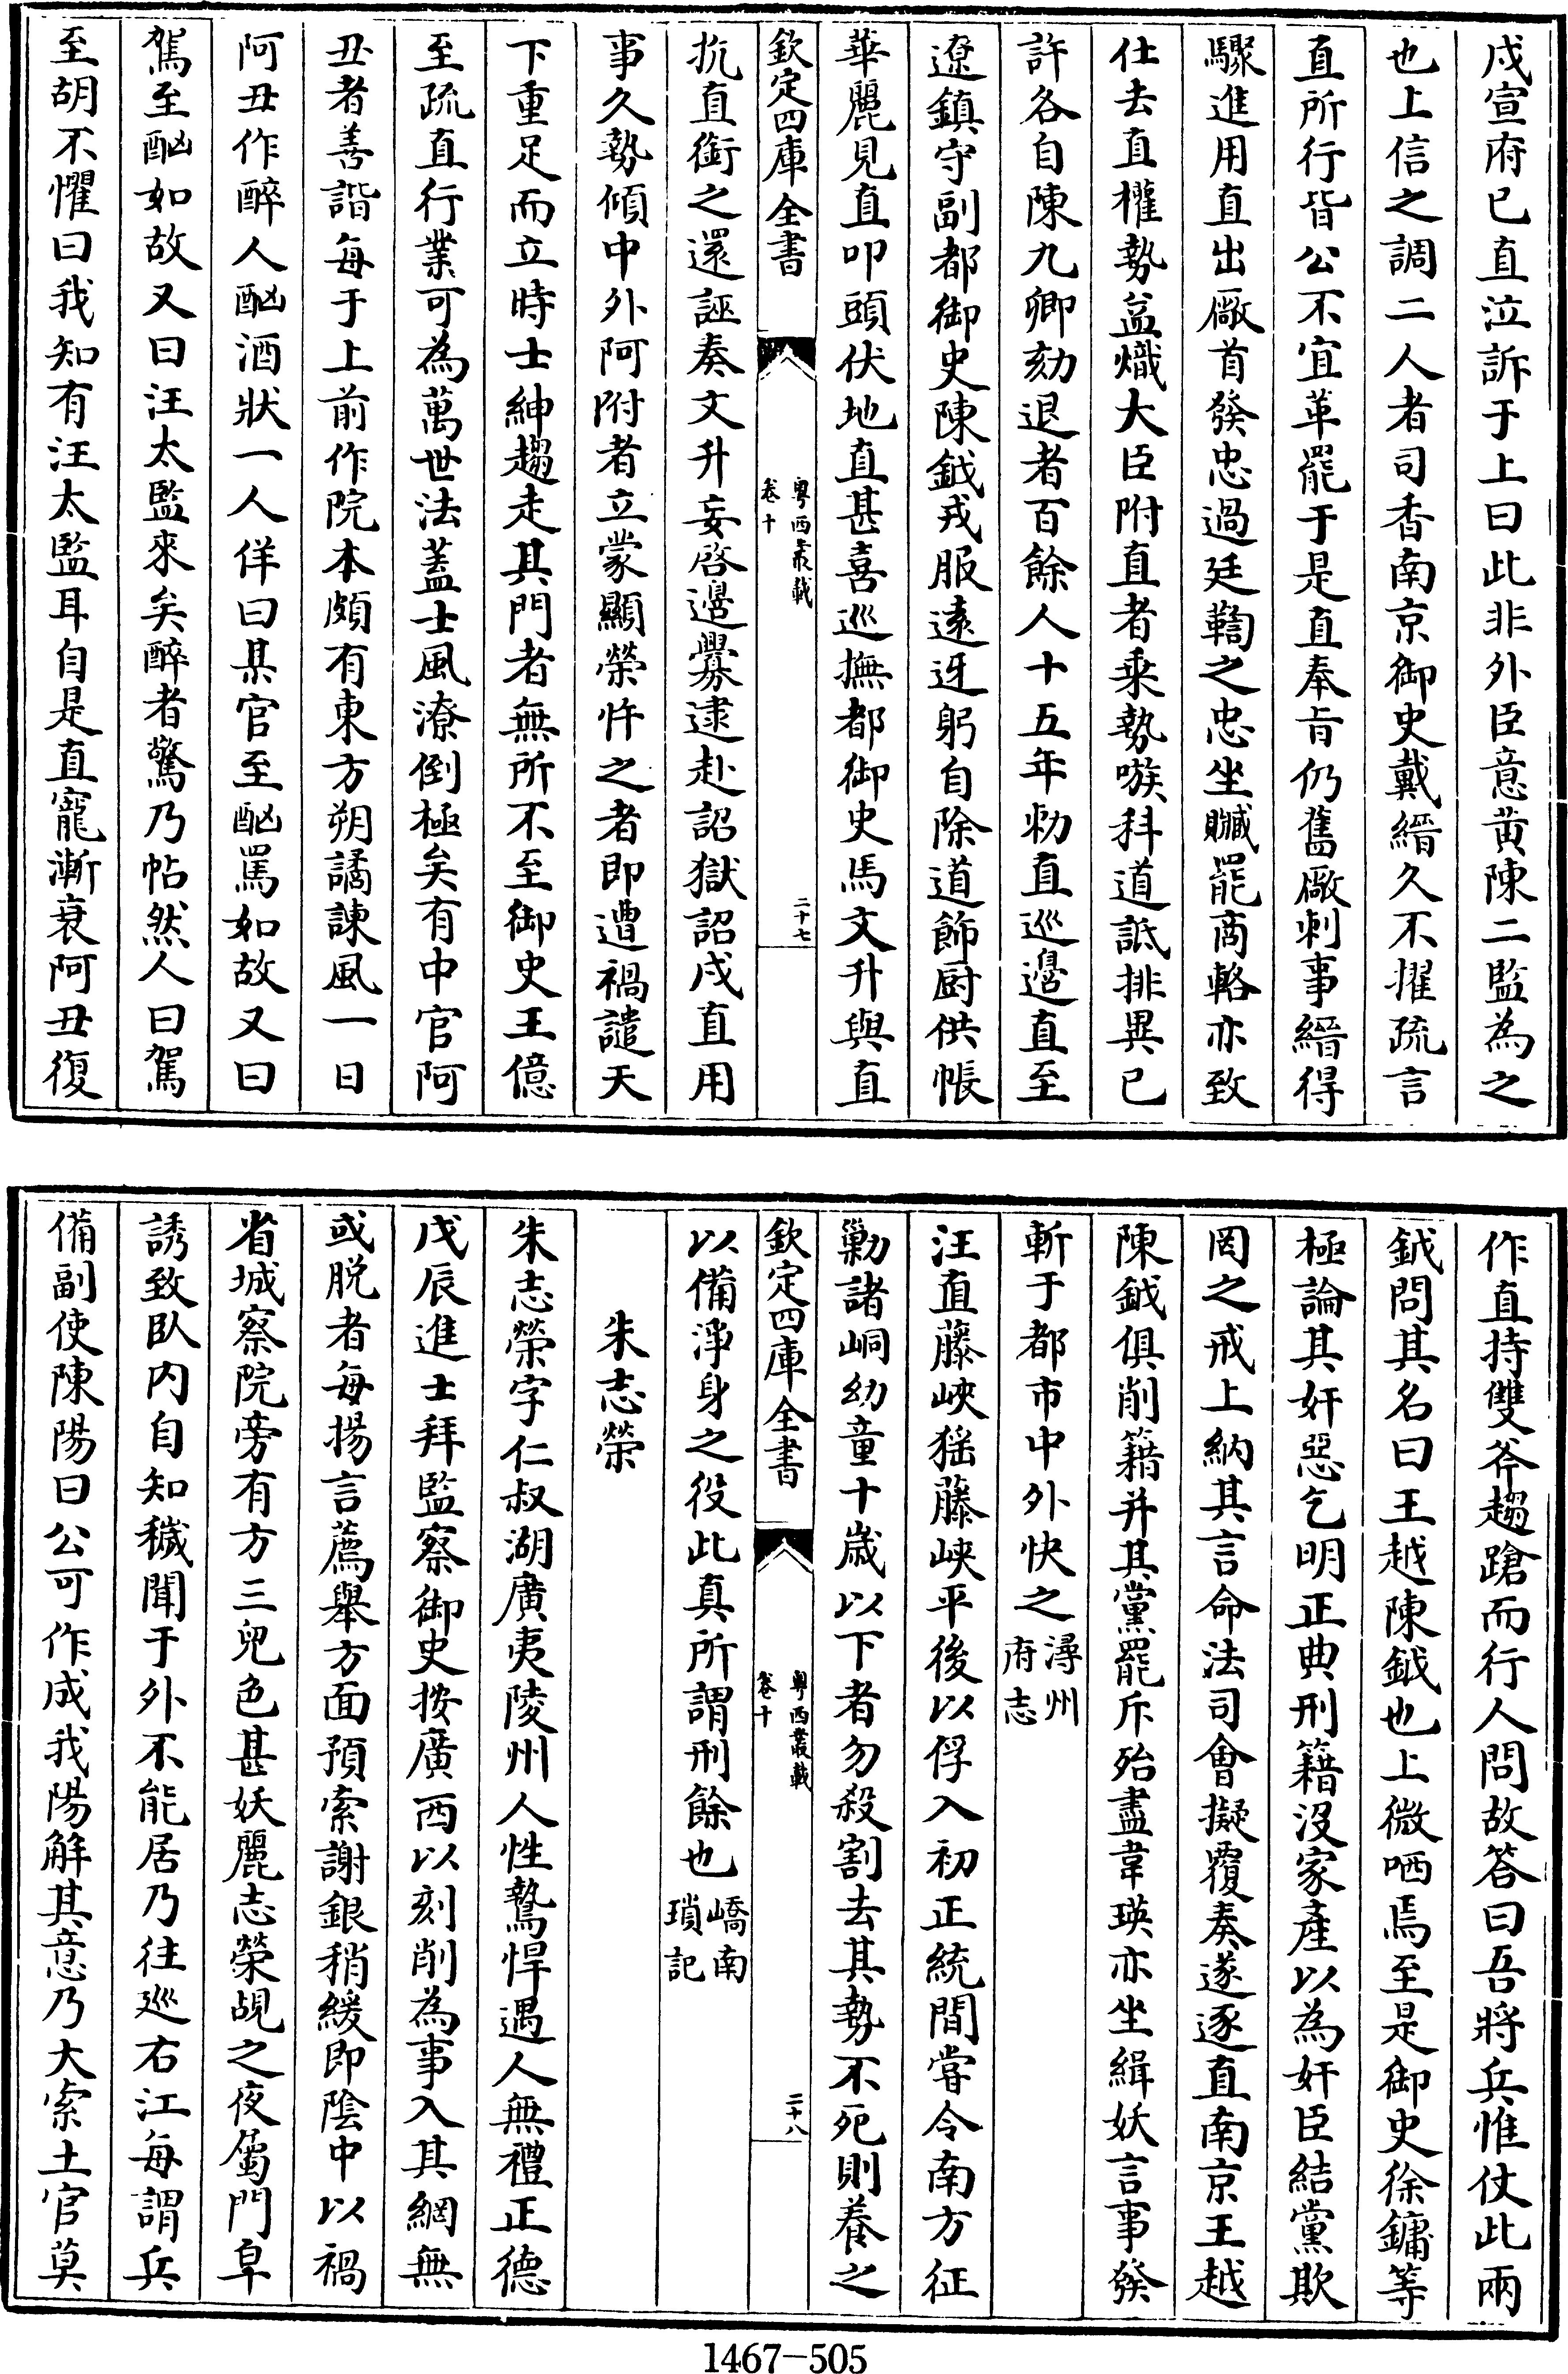 戍宣府已直泣訴于上曰此非外臣意黄陳二監為之
也上信之調二人者司香南京御史戴縉久不擢疏言
直所行皆公不宜革罷于是直奉㫖仍舊厰刺事縉得
驟進用直出厰首發忠過廷鞫之忠坐贓罷商輅亦致
仕去直權勢益熾大臣附直者乘勢嗾科道詆排異已
許各自陳九卿劾退者百餘人十五年勑直巡邉直至
遼鎮守副都御史陳鉞戎服遠迓躬自除道飾厨供帳
華麗見直叩頭伏地直甚喜巡撫都御史馬文升與直
欽定四庫全書
粤西叢載
卷十
二十七
抗直銜之還誣奏文升妄啓邉釁逮赴詔獄詔戍直用
事久勢傾中外阿附者立蒙顯榮忤之者即遭禍譴天
下重足而立時士紳趨走其門者無所不至御史王億
至疏直行業可為萬世法蓋士風潦倒極矣有中官阿
丑者善諧每于上前作院本頗有東方朔譎諫風一日
阿丑作醉人酗酒狀一人佯曰某官至酗罵如故又曰
駕至酗如故又曰汪太監來矣醉者驚乃帖然人曰駕
至胡不懼曰我知有汪太監耳自是直寵漸衰阿丑復
作直持雙斧趨蹌而行人問故答曰吾將兵惟仗此兩
鉞問其名曰王越陳鉞也上微哂焉至是御史徐鏞等
極論其奸惡乞明正典刑籍沒家產以為奸臣結黨欺
罔之戒上納其言命法司會擬覆奏遂逐直南京王越
陳鉞俱削籍并其黨罷斥殆盡韋瑛亦坐緝妖言事發
斬于都市中外快之潯州
府志
汪直藤峽猺藤峽平後以俘入初正統間嘗令南方征
勦諸峒幼童十歲以下者勿殺割去其勢不死則養之
欽定四庫全書
粤西叢載
卷十
二十八
以備淨身之役此真所謂刑餘也嶠南
瑣記
朱志榮
朱志榮字仁叔湖廣夷陵州人性鷙悍遇人無禮正德
戊辰進士拜監察御史按廣西以刻削為事入其網無
或脱者每揚言薦舉方面預索謝銀稍緩即陰中以禍
省城察院旁有方三兒色甚妖麗志榮覘之夜屬門皁
誘致臥内自知穢聞于外不能居乃往廵右江每謂兵
備副使陳陽曰公可作成我陽解其意乃大索土官莫
1467-505